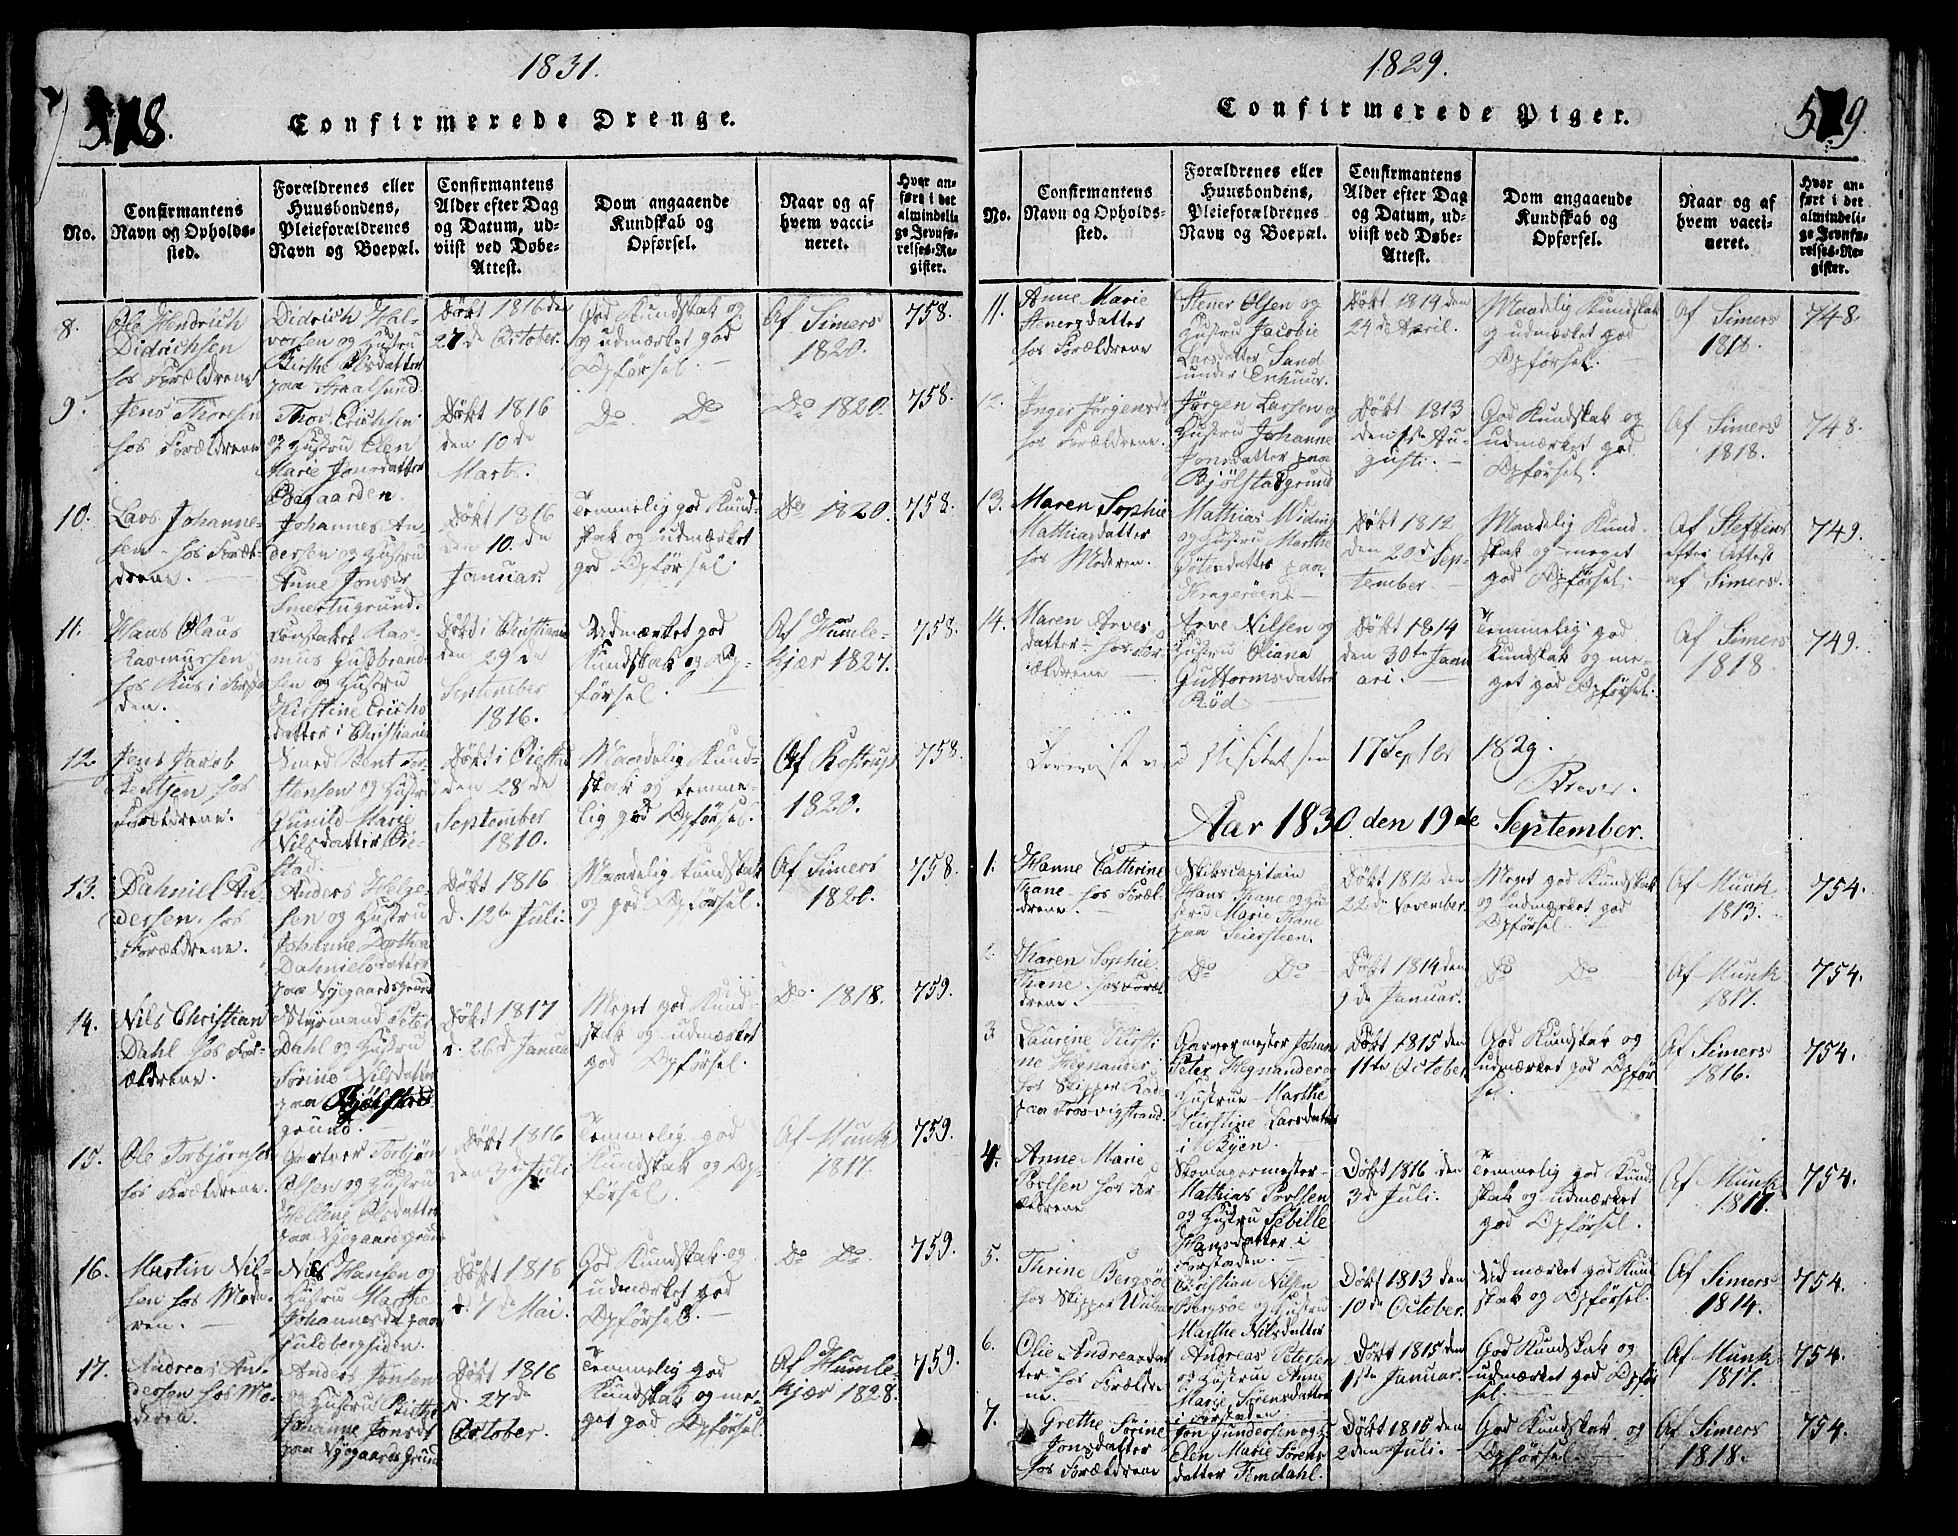 1831.
518.
Confirmerede Drenge.
No.
Confirmantens
Navn og Opholds-
sted.
Forældrenes eller
Huusbondens,
Pleieforældrenes
Navn og Boepæl.
Confirmantens
Alder efter Dag
og Datum, ud-
viist ved Døbe-
Attest.
Dom angaaende
Kundskab og
Opførsel.
Naar og af
hvem vacci-
neret.
Hvor an-
ført i det
almindeli-
ge Jevnfø-
relses-Re-
gister.
8.
Ole Hendrich
Didrichsen
hos Forældrene
Didrich Hal-
vorsen og Hustru
Birthe Olsdatter
paa Straalsund
Døbt 1816 den
27de October.
God Kundskab og
og udmærket god
Opførsel.
Af Simers
1820.
758.
9.
Jens Thoresen
hos Forældrene
Thor Erichsen
og Hustru Elen
Marie Jonsdatter
Døbt 1816
den 10de
Marts.
Do Do
Do 1820.
758.
10.
Lars Johanne-
sen hos Foræl-
drene.
Johannes An-
dersen og Hustru
Anne Jonsdr
Smertugrund.
Døbt 1816
den 10de
Januar.
Temmelig god Kund-
skab og udmærket
god Opførsel.
Do 1820.
758.
11.
Hans Olaus
Rasmussen
den.
Ras-
mus Guldbrand-
sen og Hustru
Kirstine Erichs-
datter i Christiania
Døbt i Christiania
den 29de
September
1816.
Udmærket god
Kundskab og Op-
førsel.
Af Humle-
kjær 1827.
758.
12
Jens Jacob
Bentsen hos
Forældrene.
Smed Bent Tor-
stensen og Hustru
Gunild Marie
Nilsdatter Øie-
stad.
Døbt i Øiestad
den 28de
September
1810.
Maadelig Kund-
skab og temme-
lig god Opførsel.
Af Rostrup
1820.
758.
13.
Dahniel An-
dersen, hos
Forældrene.
Anders Helge-
sen og Hustru
Johanne Dorthea
Dahnielsdatter
paa Nygaardsgrund
Døbt 1816
d. 12te Juli.
Maadelig Kundskab
og god Opførsel.
Af Simers
1820.
758.
14.
Nils Christian
Dahl hos For-
ældrene.
Styrmand Peter
Dahl og Hustru
Sørine Nilsdatter
paa Bjølstad-
grund.
Døbt 1817
d. 26de Januar
Meget god Kund-
skab og udmærket
god Opførsel.
Do. 1818.
759.
15.
Ole Torbjørnsen
hos Forældrene.
Torbjørn
Olsen og Hustru
Hellene Olsdatter
paa Nygaardsgrund
Døbt 1816
den 3de Juli
Temmelig god
Kundskab og Op-
førsel.
Af Munk
1817.
759.
16.
Martin Nil-
sen hos Mode-
ren.
Nils Hansen og
Hustru Marthe
Johannesdr paa
Guldbergsiden.
Døbt 1816
d. 7de Mai.
God Kundskab og
udmærket god
Opførsel.
Do Do
759.
17.
Andreas An-
dersen hos Mo-
deren.
Anders Jonsen
og Hustru Birthe
Johanne Jonsdr
paa Nygaardsgrund
Døbt 1816
d. 27de
October.
Temmelig god
Kundskab og me-
get god Opførsel.
Af Humle-
kjær 1828.
759.
1829.
519.
Confirmerede Piger.
No.
Confirmantens
Navn og Opholds-
sted.
Forældrenes eller
Huusbondens,
Pleieforældrenes
Navn og Boepæl.
Confirmantens
Alder efter Dag
og Datum, ud-
viist ved Døbe-
Attest.
Dom angaaende
Kundskab og
Opførsel.
Naar og af
hvem vacci-
neret.
Hvor an-
ført i det
almindeli-
ge Jevnfø-
relses-Re-
gister.
11.
Anne Marie
Stenersdatter
hos Forældrene
Stener Olsen og
Hustru Jacobie
Larsdatter Sand
under
Døbt 1814 den
24de April.
Maadelig Kundskab
og udmærket god
Opførsel.
Af Simers
1818.
748
12.
Inger Jørgensdr
hos Forældrene.
Jørgen Larsen og
Hustru Johanne
Jonsdatter paa
Bjølstadgrund
Døbt 1813
den 1ste Au-
gusti.
God Kundskab og
udmærket god
Opførsel.
Af Simers
1818.
748.
13.
Maren Sophie
Mathiasdatter
hos Moderen.
Mathias Widing
og Hustru Marthe
paa
Kragerøen
Døbt 1812
den 20de Sep-
tember
Maadelig Kund-
skab og meget
god Opførsel.
Af Steffens
efter Attest
af Simers.
749.
14.
Maren Arves-
datter hos For-
ældrene
Arve Nilsen og
Hustru Oliana
Guttormsdatter
Rød
Døbt 1814
den 30te Janu-
ari.
Temmelig god
Kundskab og me-
get god Opførsel.
Af Simers
1818.
749.
Foreviist ved Visitatsen 17 Septbr 1829.
Aar 1830 den 19de September.
1.
Hanne Cathrine
Thane hos Foræl-
drene.
Skibscapitain
Hans Thane og Hu-
stru Marie Thane
paa Seiersteen.
Døbt 1812 den
22de November
Meget god Kundskab
og udmærket god
Opførsel.
Af Munk
1813.
754.
2.
Karen Sophie
Thane hos Foræl-
drene.
Do Do
Døbt 1814 den
9de Januar.
Do Do
Af Munk
1817.
754.
3
Laurine Kirsti-
ne Hegnander
hos Skipper
paa Frosvigstrand.
Garvermester Johan
Peter Hegnander og
Hustrue Marthe
Kirstine Larsdatter
i Byen.
Døbt 1815 den
11te October
God Kundskab og
udmærket god Opfør-
sel.
Af Simers
1816.
754.
4.
Anne Marie
Povlsen hos For-
ældrene
Mathias Povlsen
og Hustru Sebille
Hansdatter i
Forstaden.
Døbt 1816 den
3de Juli.
Temmelig god Kund-
skab og udmærket
god Opførsel.
Af Munk
1817.
754.
5.
Thrine Bergsøe
hos Skipper
Christian Nilsen
Bergsøe og Hustru
Marthe Nilsdatter
Døbt 1813 den
10de October.
Udmærket god Kund-
skab og Opførsel.
Af Simers
1814.
754.
6.
Olie Andreasdat-
ter hos Forældre-
ne.
Andreas Petersen
og Hustrue Anne
Marie Sørensdatter
i Forstaden
Døbt 1815 den
1ste Januar.
God Kundskab og
udmærket god Opfør-
sel.
Af Munk
1817.
754.
7.
Grethe Sørine
Jonsdatter
hos Forældrene
Jon Gundersen og H.
Elen Marie Sørens-
datter Temdahl.
Døbt 1815 den
2den Juli.
God Kundskab og
Opførsel.
Af Simers
1818.
754.